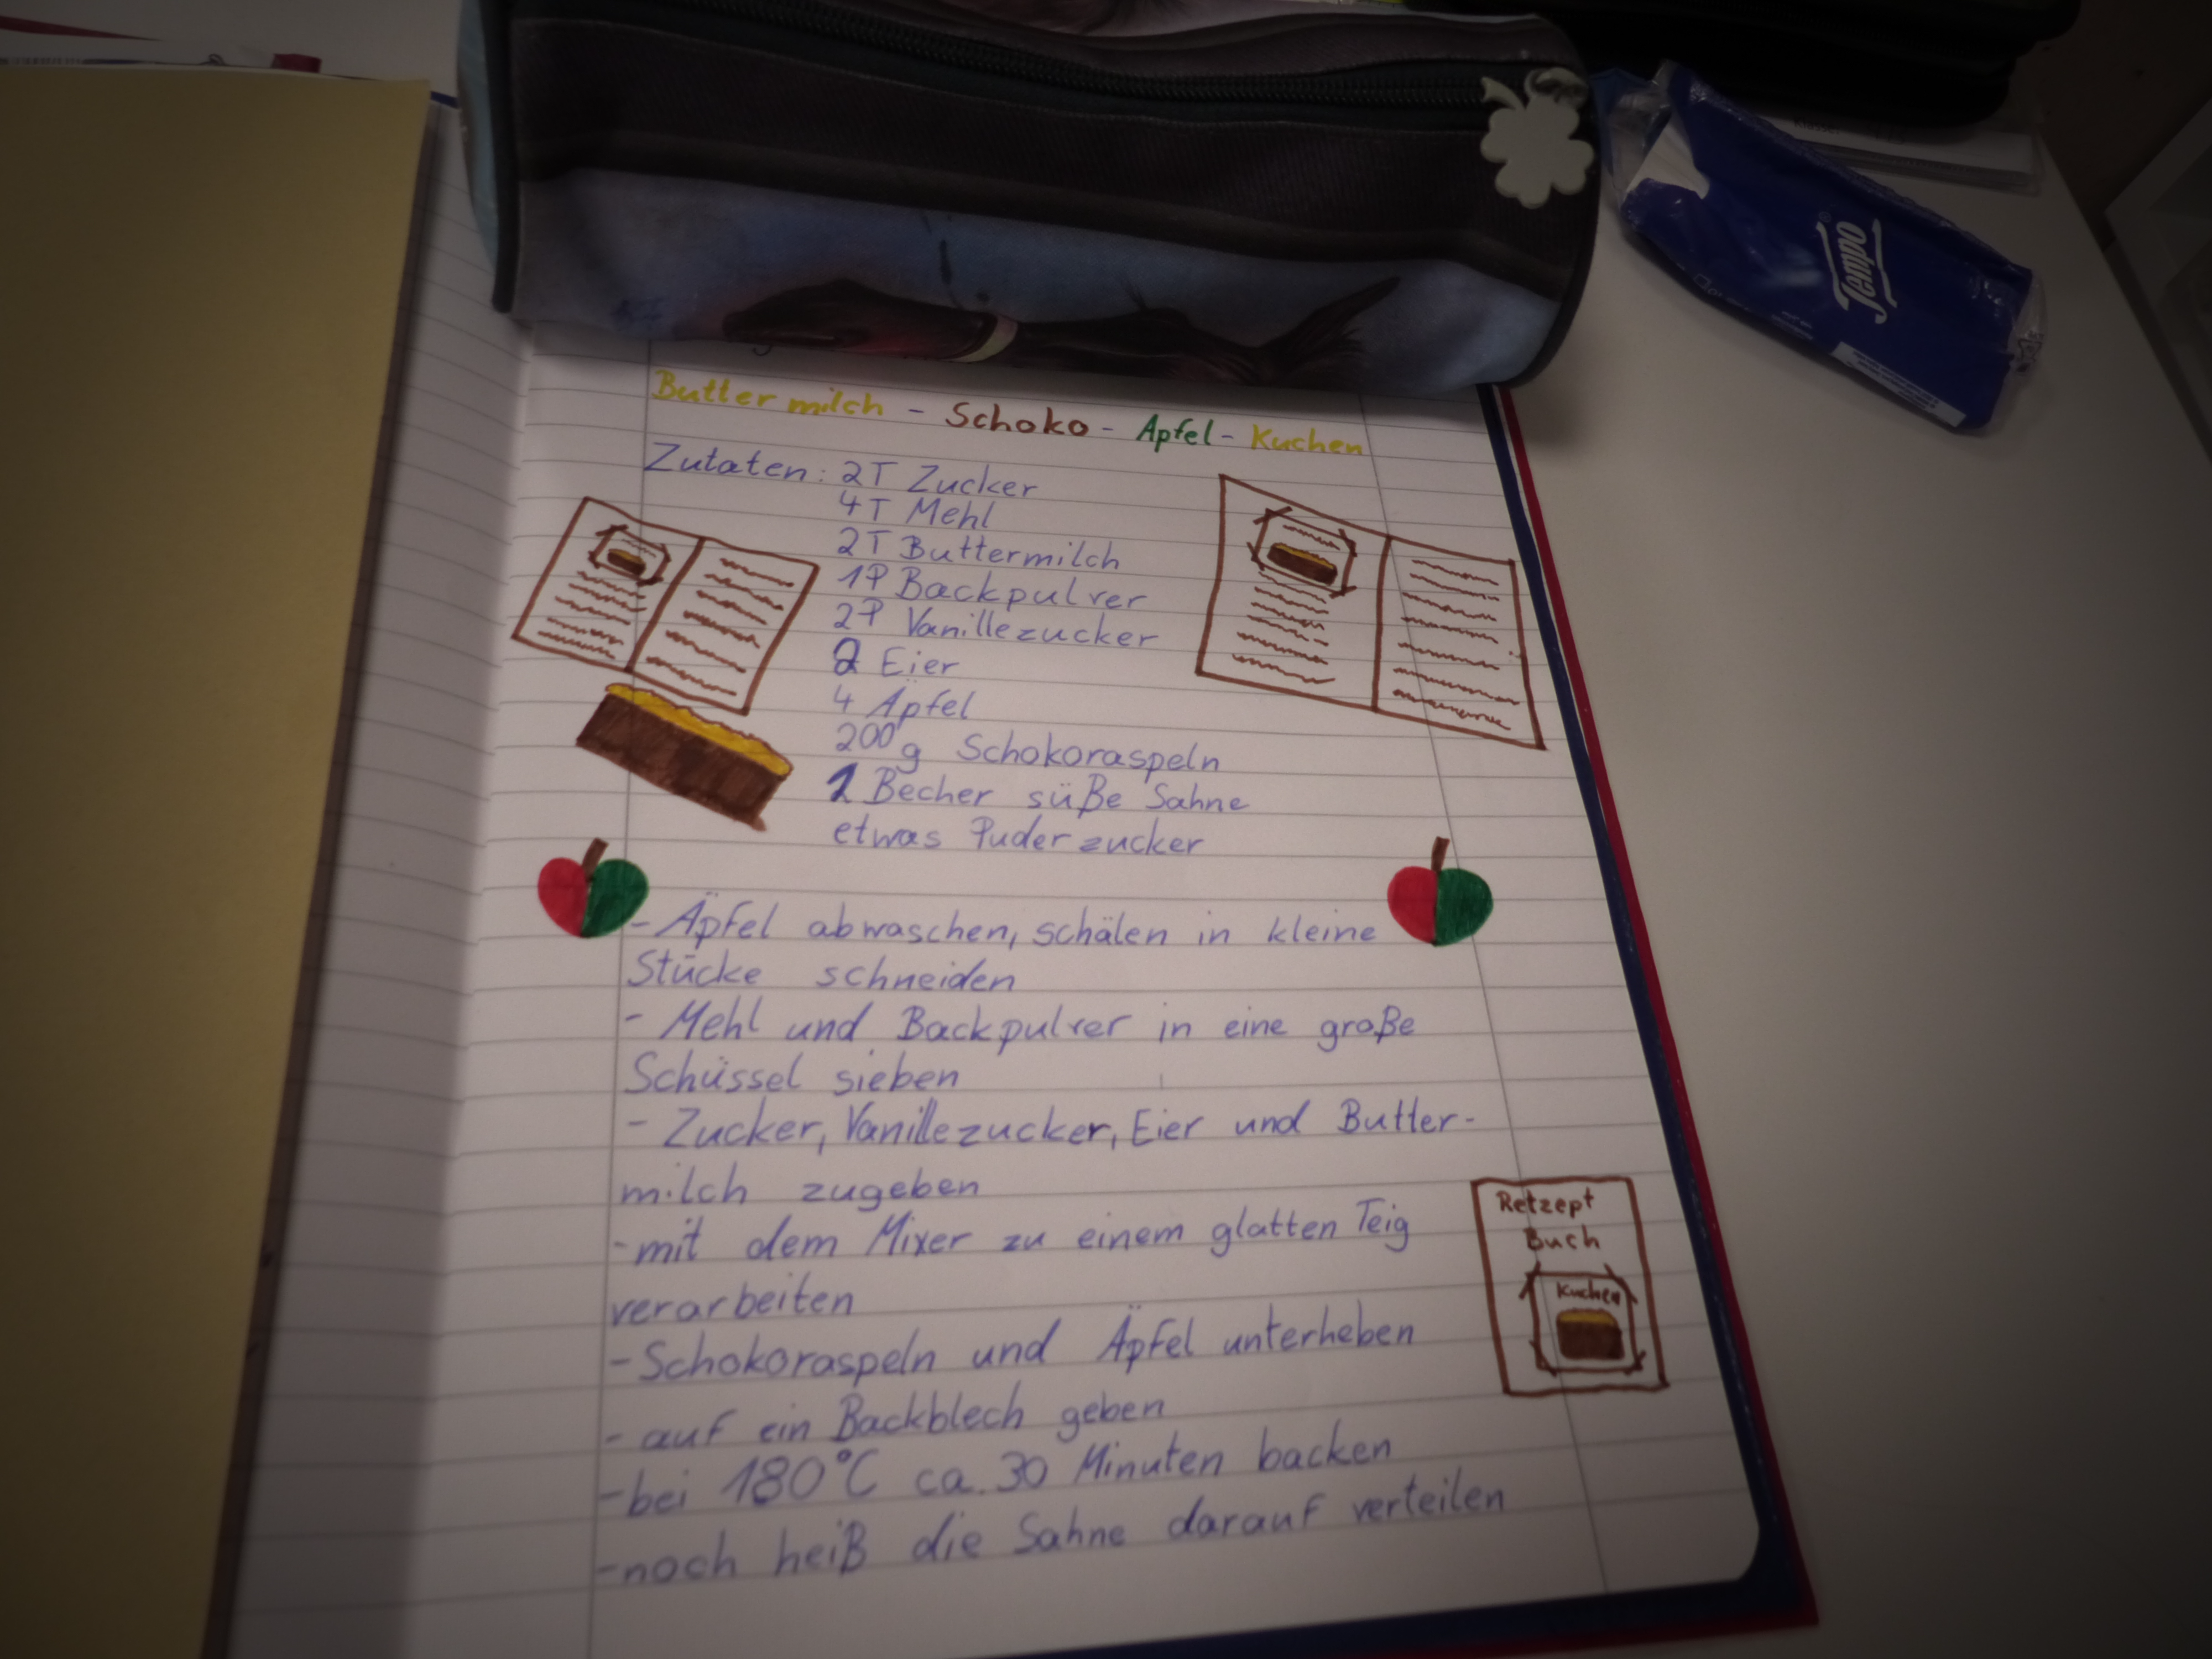 Tempo
Buttermilch - Schoko - Apfel - Kuchen
Zutaten: 2T Zucker
4T Mehl
2T Buttermilch
1P Backpulver
2P Vanillezucker
2 Eier
4 Äpfel
200 g Schokoraspeln
1 Becher süße Sahne
etwas Puderzucker
- Äpfel abwaschen, schälen in kleine
Stücke schneiden
- Mehl und Backpulver in eine große
Schüssel sieben
- Zucker, Vanillezucker, Eier und Butter-
milch zugeben
- mit dem Mixer zu einem glatten Teig
verarbeiten
- Schokoraspeln und Äpfel unterheben
- auf ein Backblech geben
- bei 180°C ca. 30 Minuten backen
- noch heiß die Sahne darauf verteilen
Retzept
Buch
Kuchen